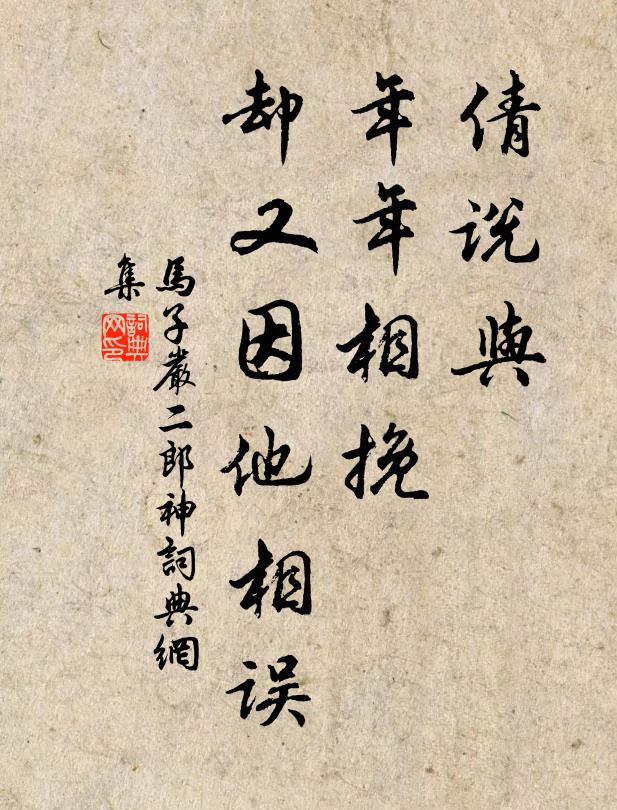 倩説與
年年相挽
却又因他相误
馬子嚴二郎神詞典網
集
詞典
网印